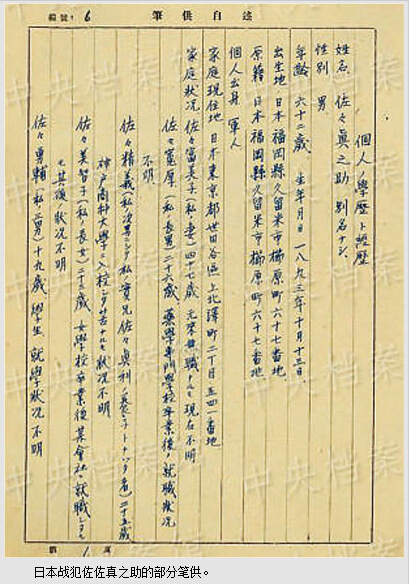 編號: 6
述自供筆
個人ノ學歷ト經歷
姓名 佐々眞之助 別名ナシ
性別 男
年齢 六十二歳 生年月日 一八九三年十月十三日
出生地 日本福岡縣久留米市櫛原町六十七番地
原籍 日本福岡縣久留米市櫛原町六十七番地
個人出身 軍人
家庭現住地 日本東京都世田谷區上北澤町二丁目五四一番地
家庭狀況 佐々富美子(私ノ妻)四十七歳 元来無職ナルモ現在不明
佐々憲厚(私ノ長男)二十六歳 藥學専門學校卒業後ノ就職狀況
不明
佐々精義(私ノ次男ニシテ私ノ實兄佐々眞利ノ養子トナッタ者)二十五歳
神戸商科大學ニ入校シタ筈ナルモ狀況不明
佐々美智子(私ノ長女)二十三歳 女學校卒業後某會社ニ就職シタル
モ其後ノ狀況不明
佐々勇輔(私ノ三男)十九歳 學生 就學狀況不明
第 1 頁
中央档案
日本战犯佐佐真之助的部分笔供。